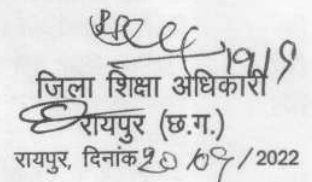 19/9
जिला शिक्षा अधिकारी
रायपुर (छ.ग.)
रायपुर, दिनांक 20/09/2022